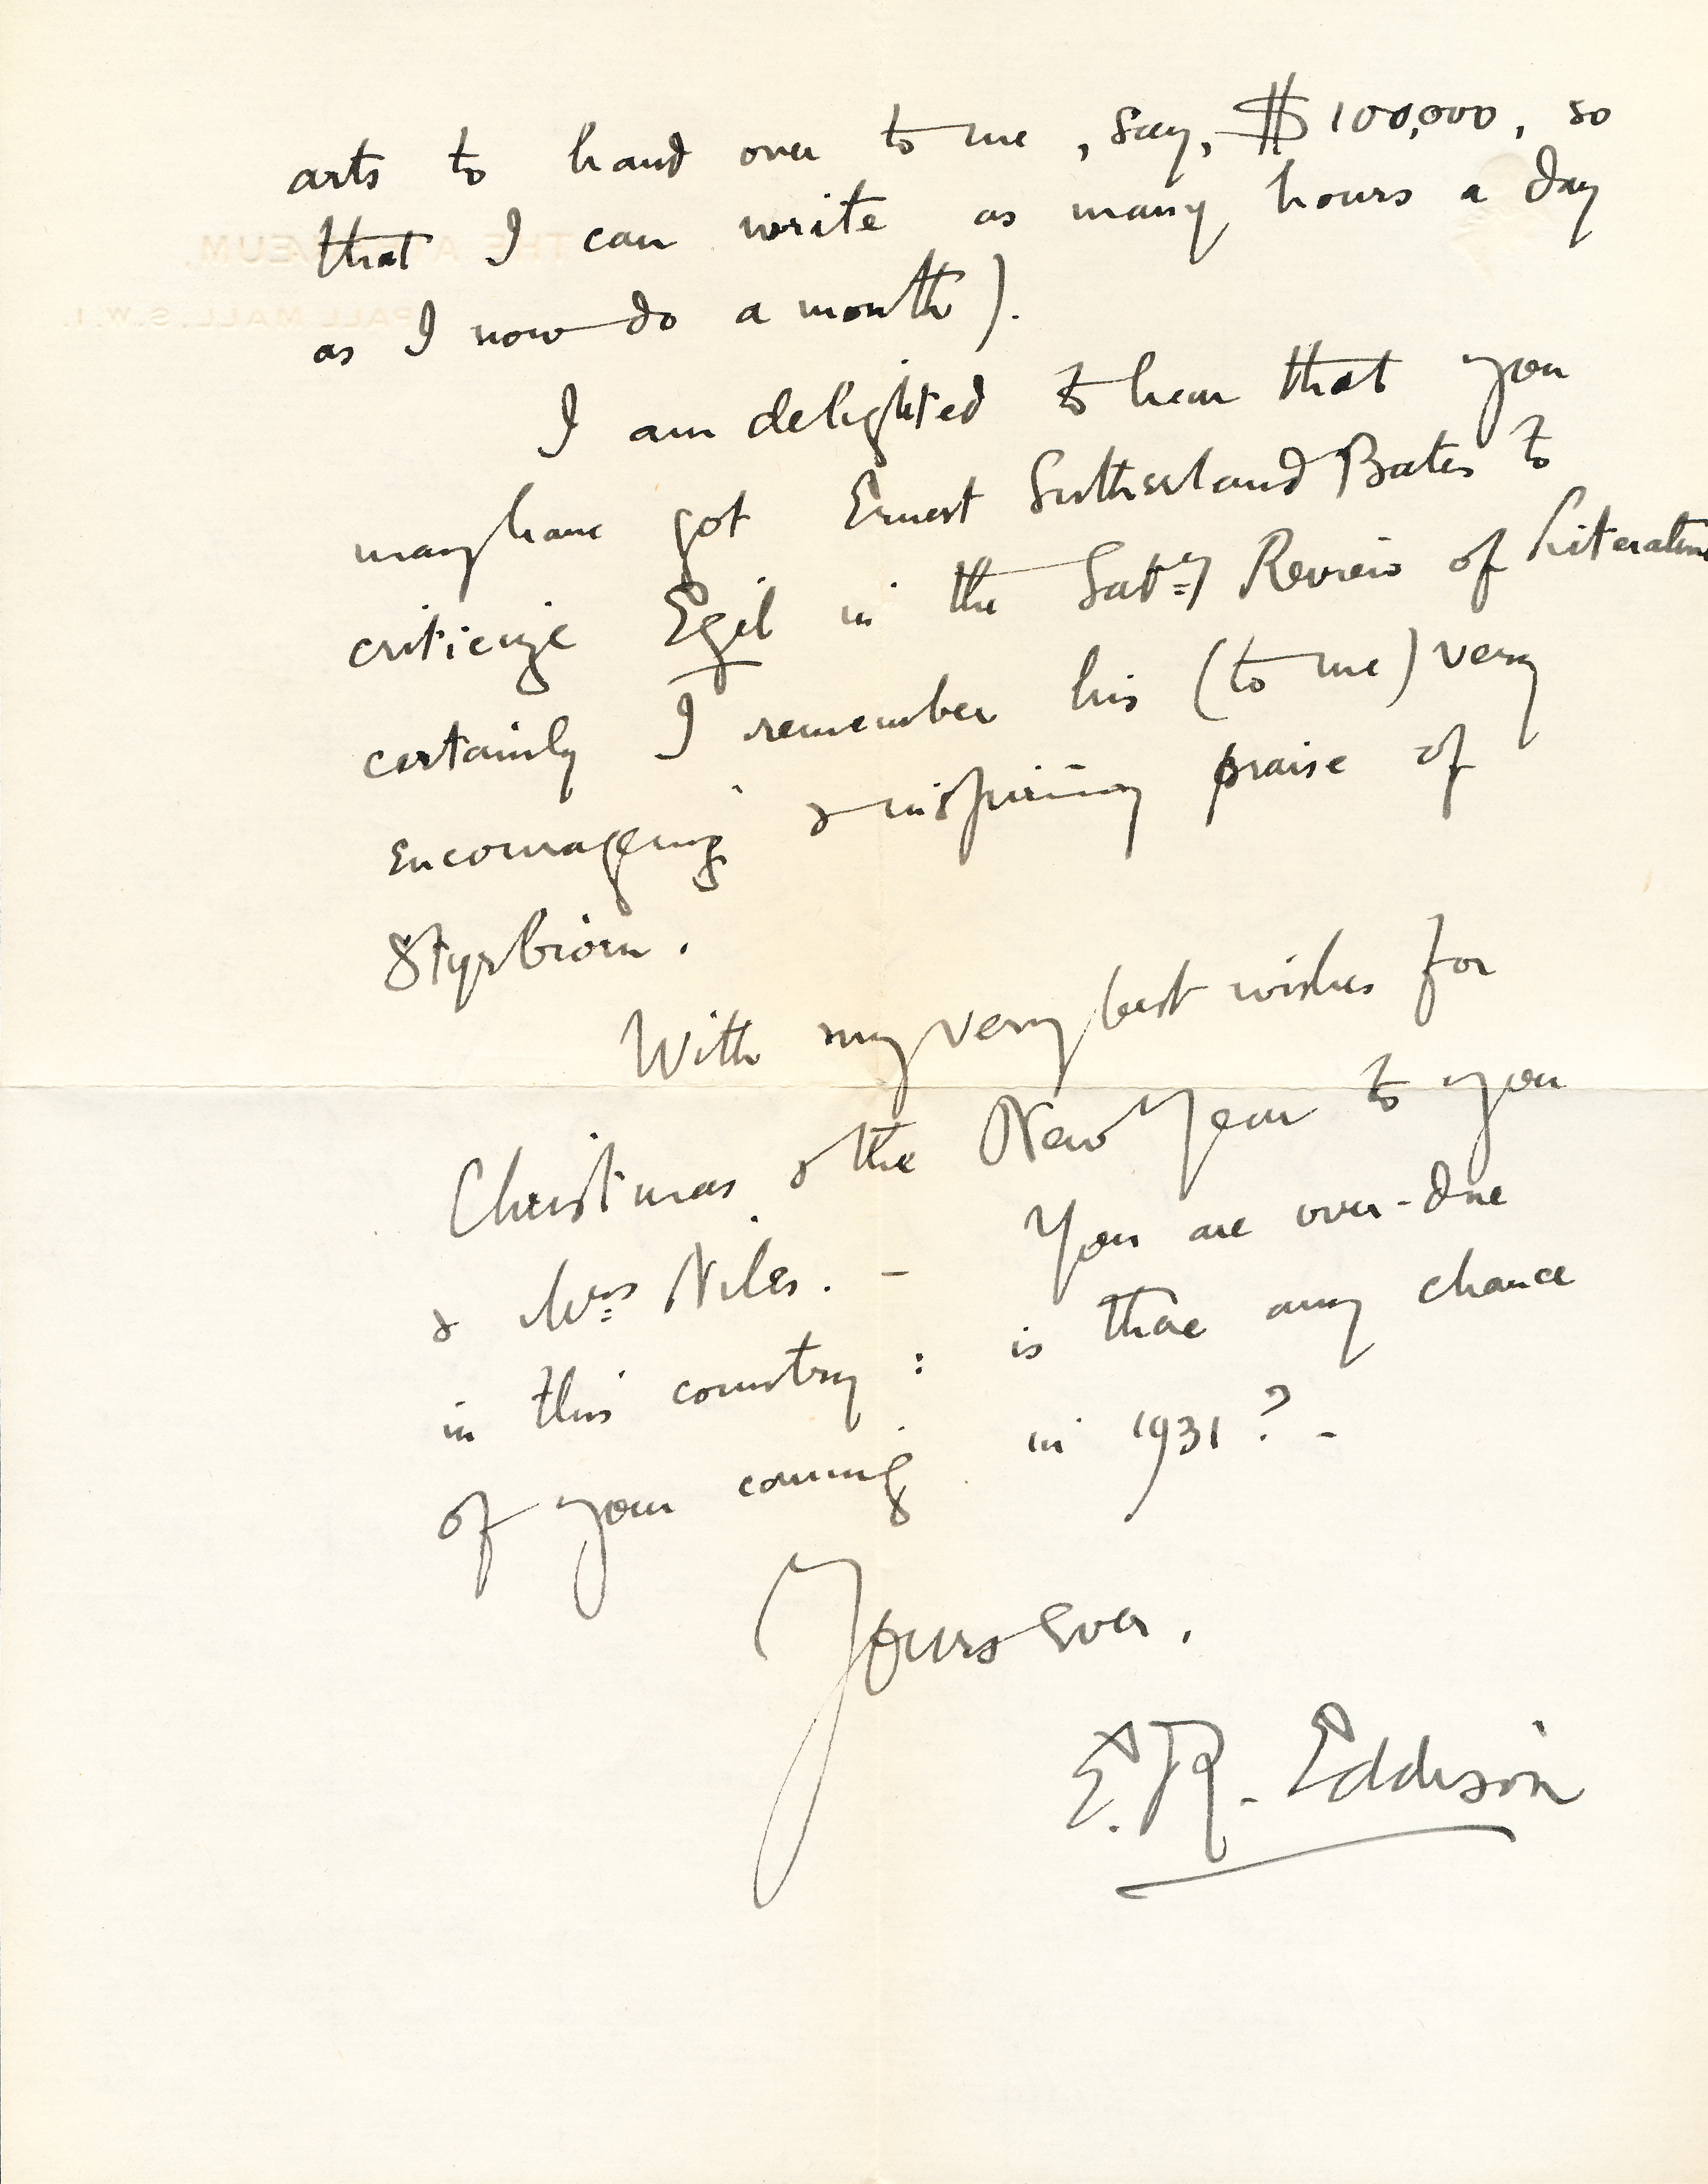 arts to hand over to me, say, $100,000, so
that I can write as many hours a day
as I now do a month).
I am delighted to hear that you
may have got Ernest Sutherland Bates to
criticize Egil in the Satdy Review of Literature
certainly I remember his (to me) very
encouraging & inspiring praise of
Styrbiorn.
With my very best wishes for
Christmas & the New Year to you
& Mrs Niles. – You are over-due
in this country: is there any chance
of your coming in 1931? –
Yours ever,
E. R. Eddison
THE ATHENÆUM,
PALL MALL, S.W.1.